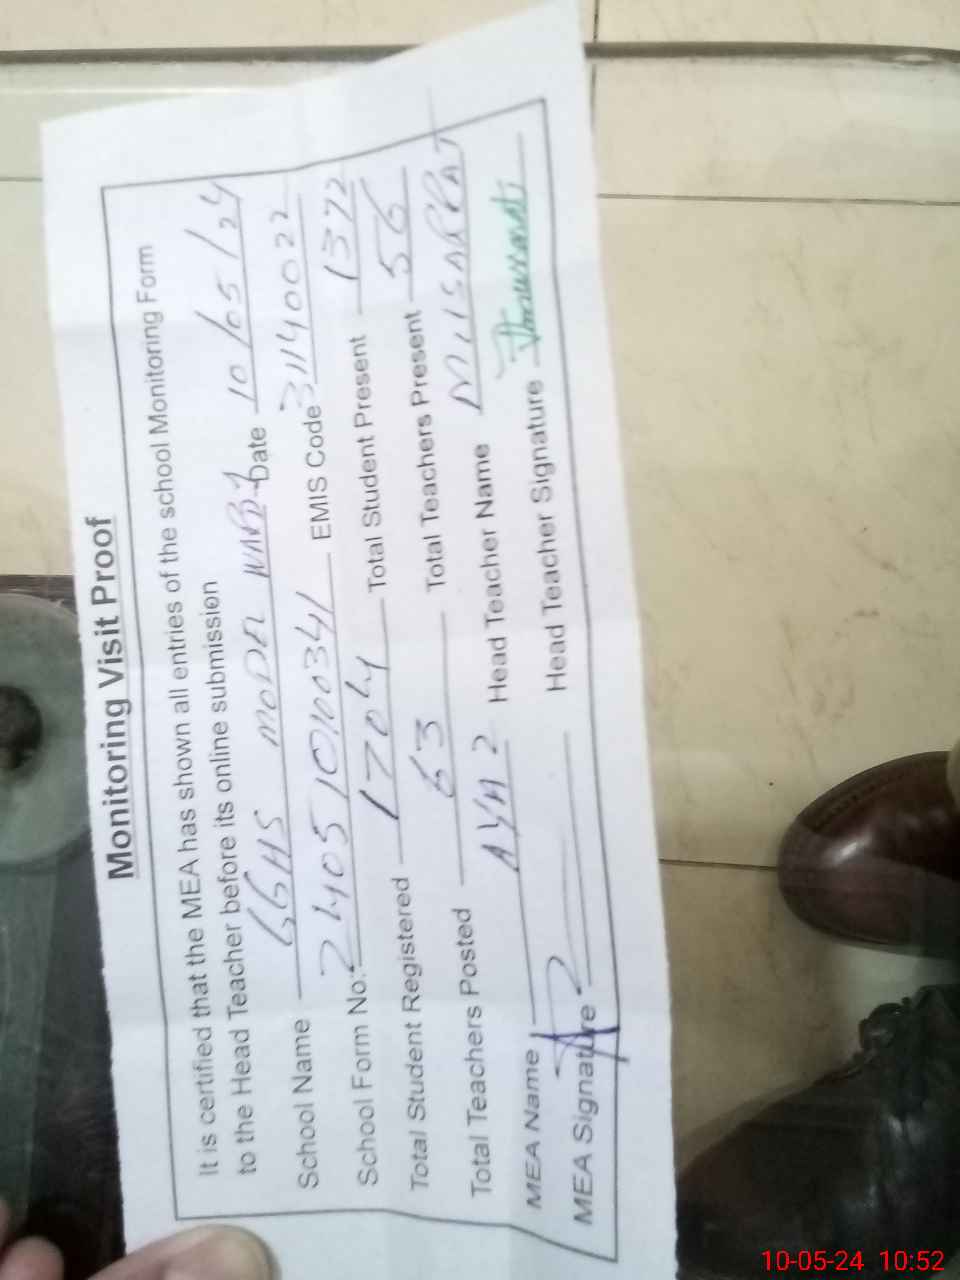 Monitoring Visit Proof
It is certified that the MEA has shown all entries of the school Monitoring Form
to the Head Teacher before its online submission
School Name GGHS MODEL WARD-1 Date 10/05/24
School Form No: 2405 EMIS Code 31140022
Total Student Registered 1704 Total Student Present 1372
Total Teachers Posted 63 Total Teachers Present 56
MEA Name Head Teacher Name MUSARRAT
MEA Signature Head Teacher Signature
10-05-24 10:52